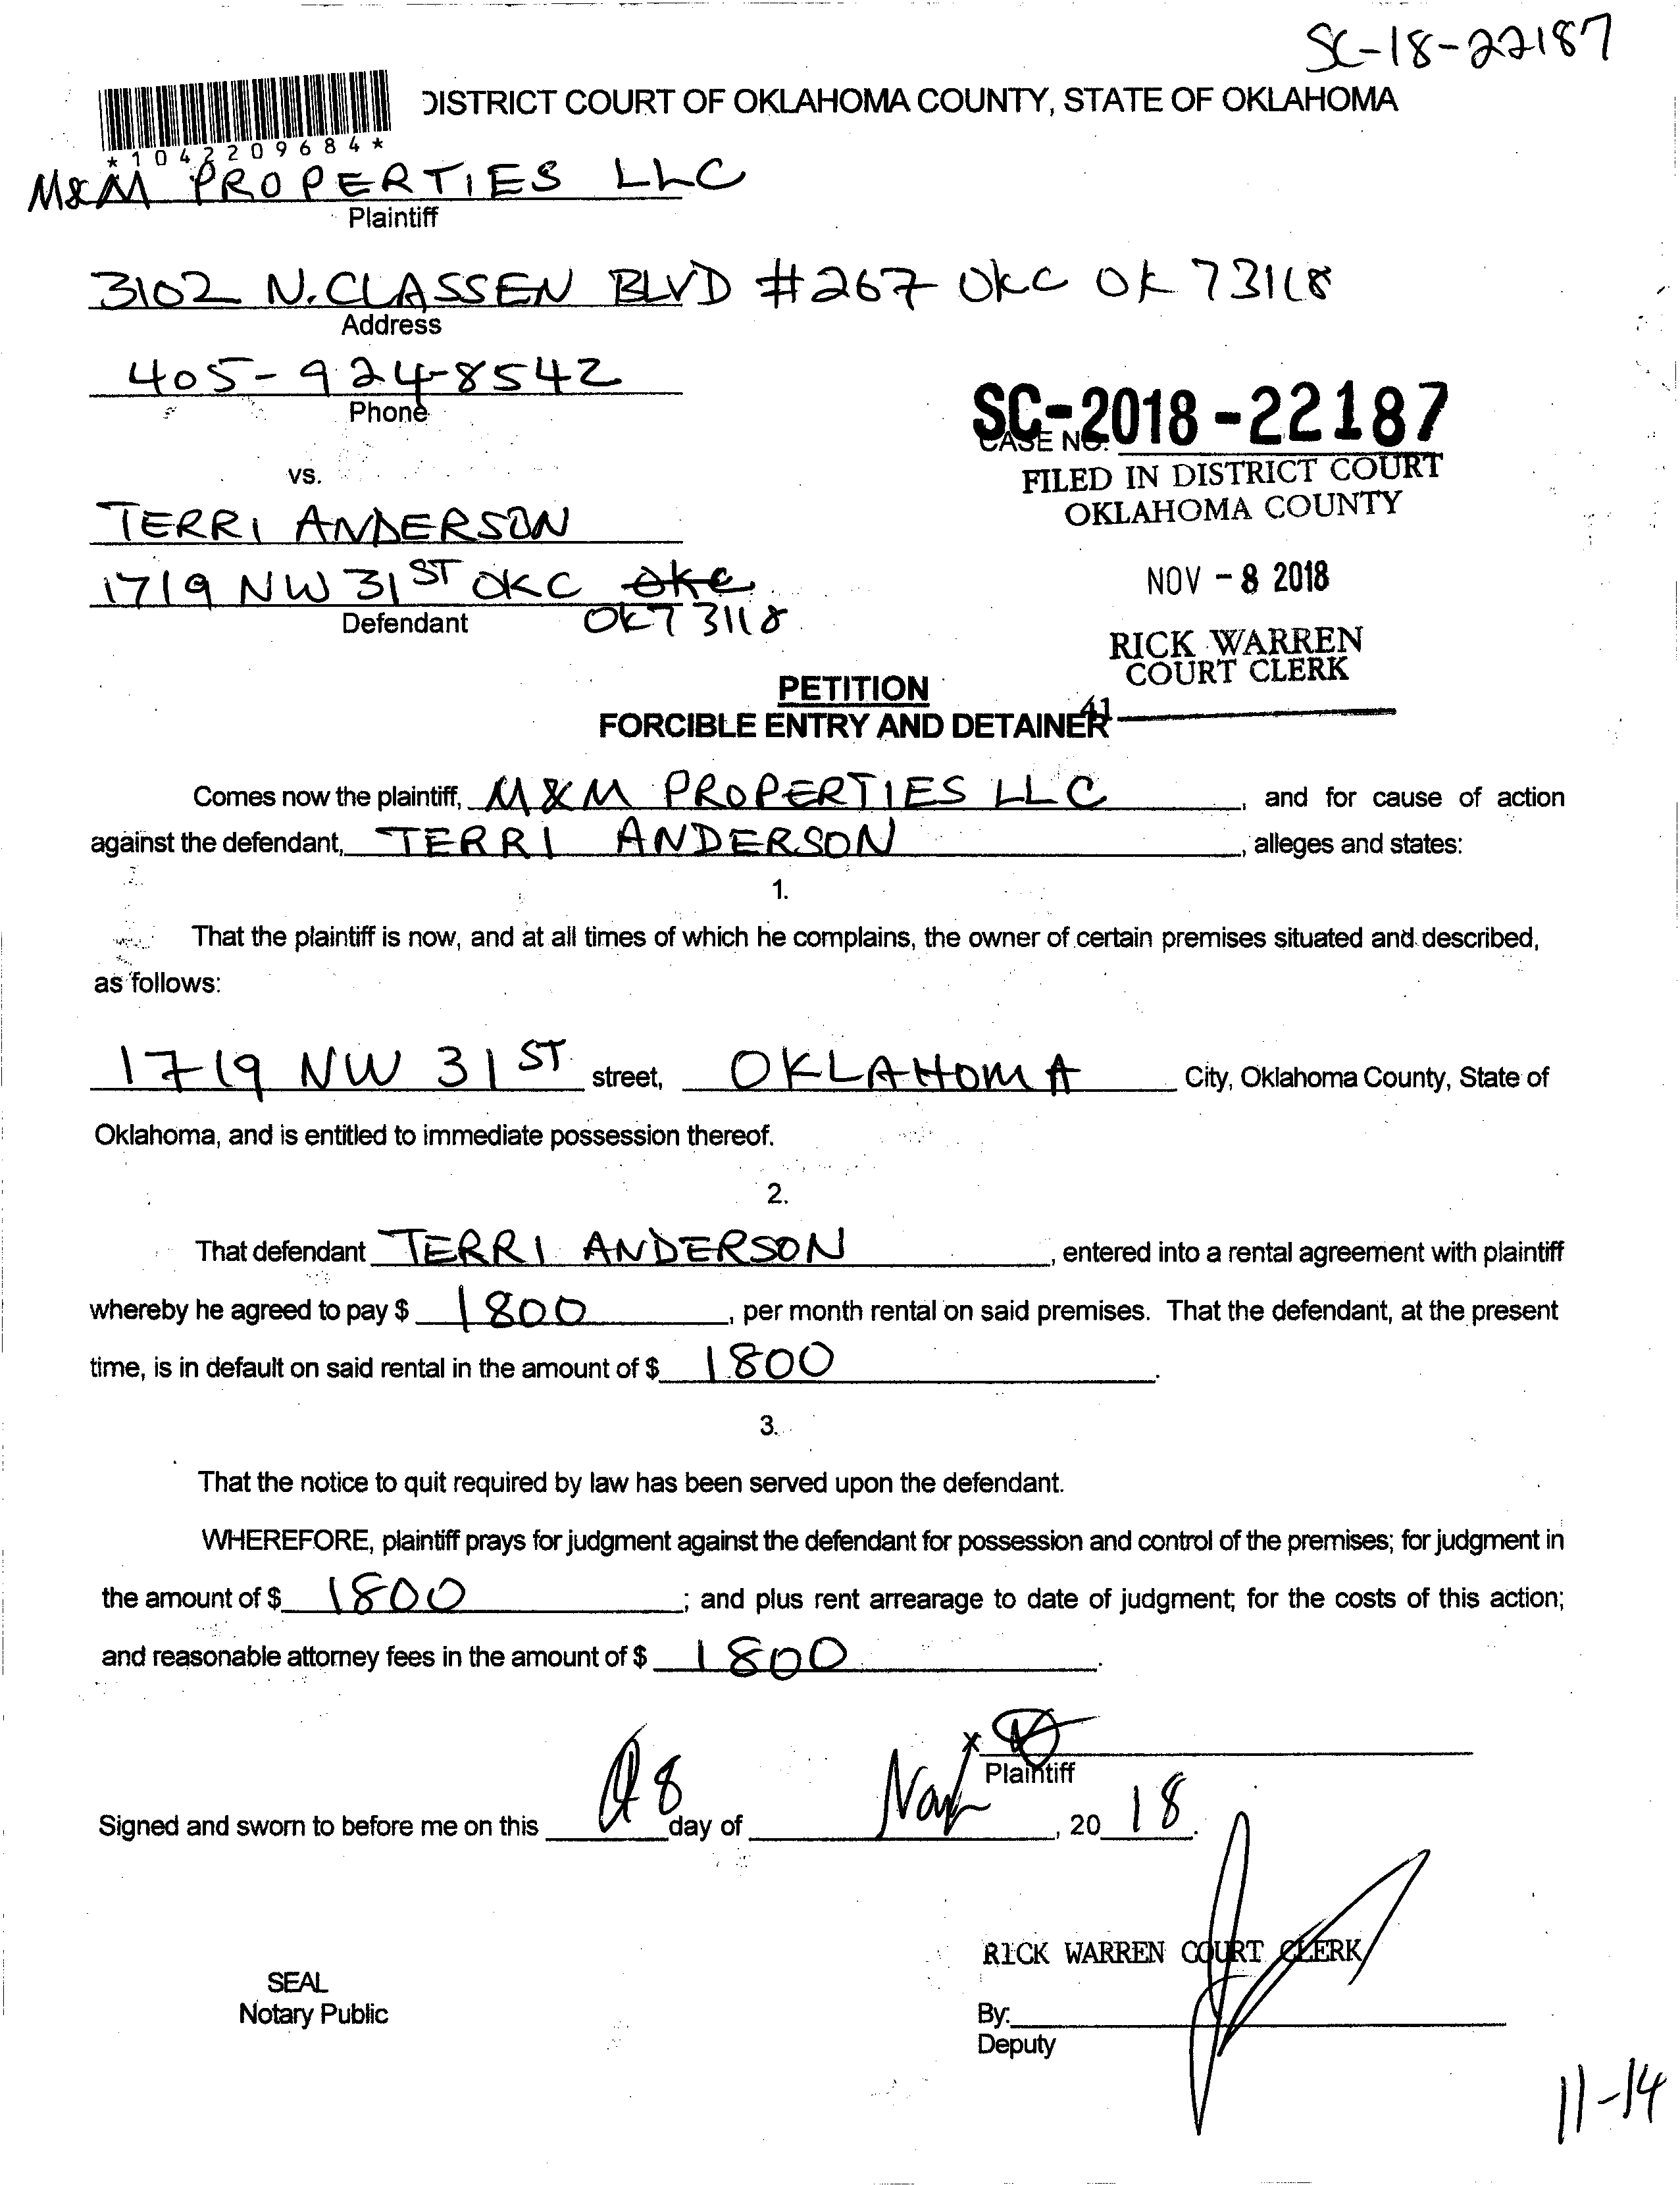 SC-18-22187
DISTRICT COURT OF OKLAHOMA COUNTY, STATE OF OKLAHOMA
*1042209684*
M&M PROPERTIES LLC
Plaintiff
3102 N. CLASSEN BLVD #267 OKC OK 73118
Address
405-924-8542
Phone
SC-2018-22187
CASE NO.
vs.
FILED IN DISTRICT COURT
OKLAHOMA COUNTY
TERRI ANDERSON
1719 NW 31ST OKC OKC
NOV - 8 2018
Defendant OK 73118
RICK WARREN
COURT CLERK
PETITION
41
FORCIBLE ENTRY AND DETAINER
Comes now the plaintiff, M&M PROPERTIES LLC, and for cause of action
against the defendant, TERRI ANDERSON, alleges and states:
1.
That the plaintiff is now, and at all times of which he complains, the owner of certain premises situated and described,
as follows:
1719 NW 31ST street, OKLAHOMA City, Oklahoma County, State of
Oklahoma, and is entitled to immediate possession thereof.
2.
That defendant TERRI ANDERSON, entered into a rental agreement with plaintiff
whereby he agreed to pay $ 1800, per month rental on said premises. That the defendant, at the present
time, is in default on said rental in the amount of $ 1800.
3.
That the notice to quit required by law has been served upon the defendant.
WHEREFORE, plaintiff prays for judgment against the defendant for possession and control of the premises; for judgment in
the amount of $ 1800; and plus rent arrearage to date of judgment; for the costs of this action;
and reasonable attorney fees in the amount of $ 1800.
x
Plaintiff
Signed and sworn to before me on this 8 day of Nov, 2018.
RICK WARREN COURT CLERK
SEAL
Notary Public
By:
Deputy
11-14